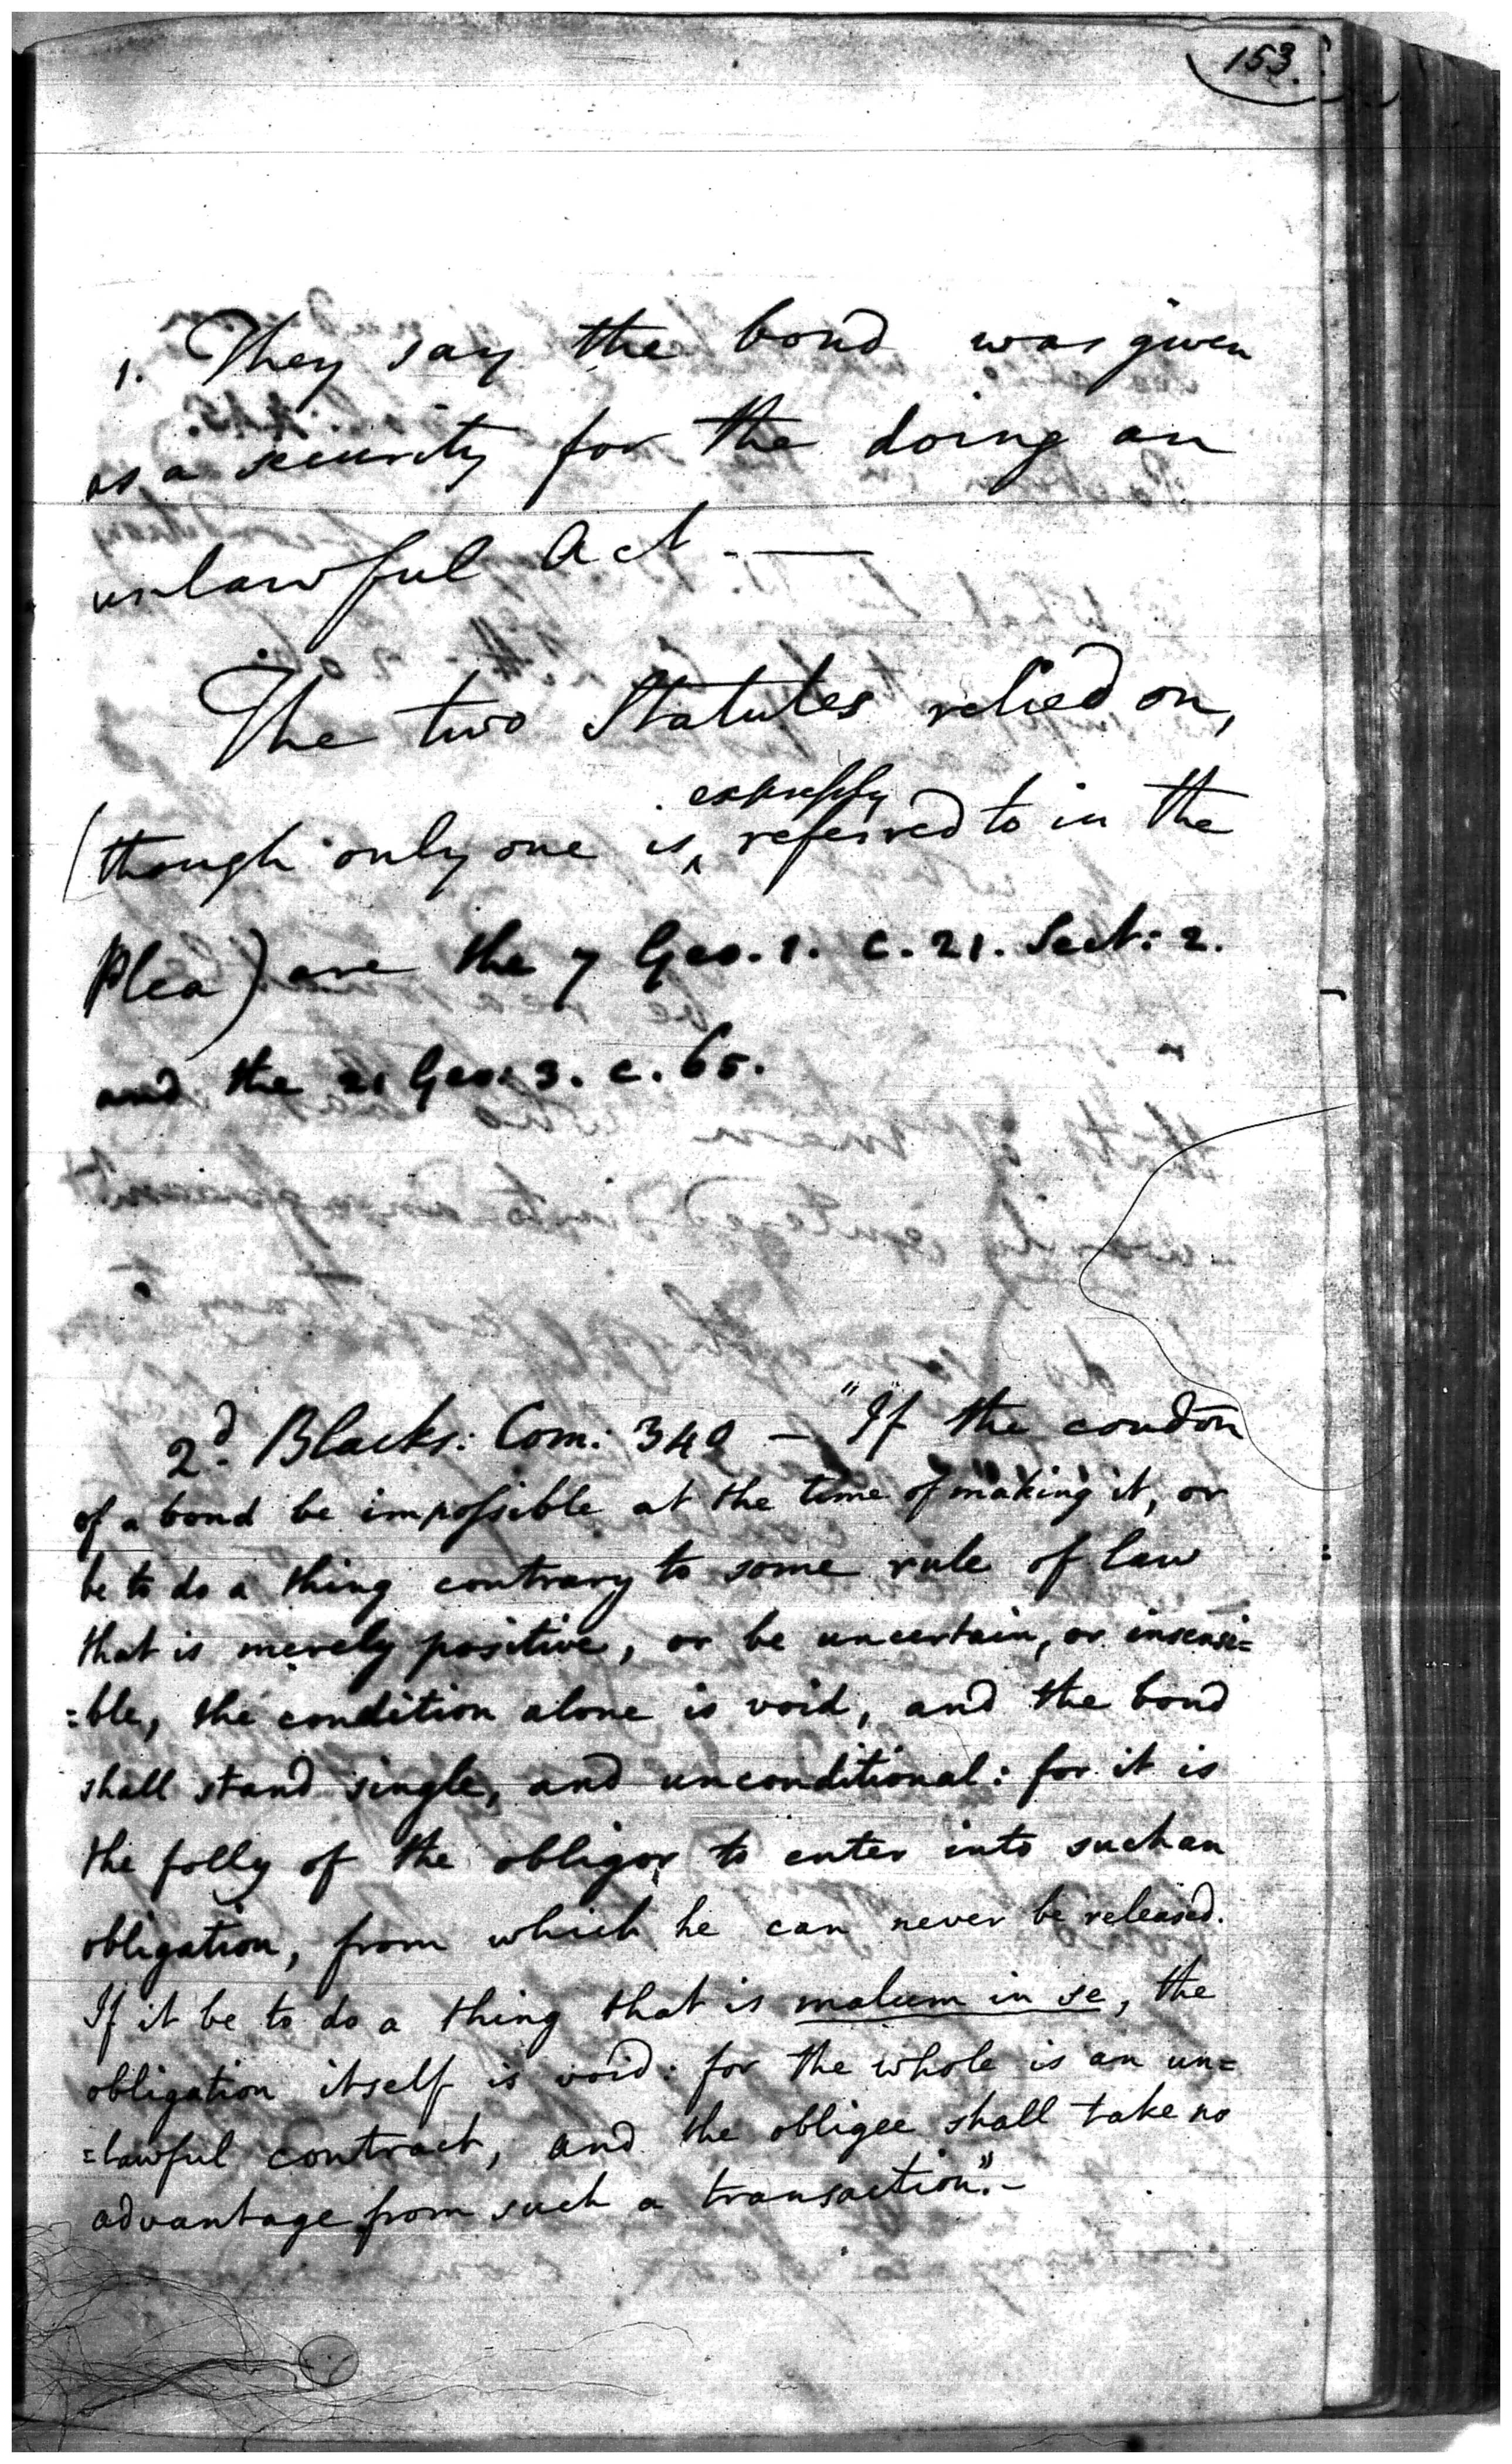 153.
1. They say the bond was given
as a security for the doing an
unlawful Act. —
The two Statutes relied on,
expressly
(though only one is ^ referred to in the
Plea) are the 7 Geo. 1. c. 21. Sect: 2.
and the 21 Geo: 3. c. 65.
2d. Blacks: Com: 340 — "If the condon
of a bond be impossible at the time of making it, or
be to do a thing contrary to some rule of law
that is merely positive, or be uncertain, or insensi=
=ble, the condition alone is void, and the bond
shall stand single, and unconditional: for it is
the folly of the obligor to enter into such an
obligation, from which he can never be released.
If it be to do a thing that is malum in se, the
obligation itself is void: for the whole is an un=
=lawful contract, and the obligee shall take no
advantage from such a transaction".-